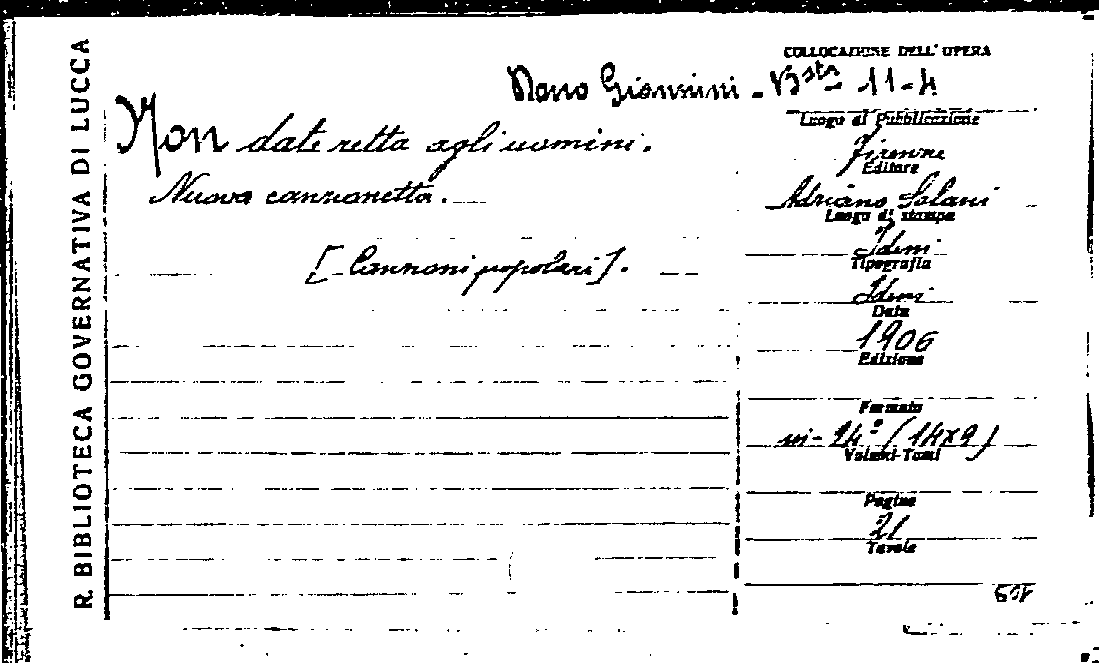 R. BIBLIOTECA GOVERNATIVA DI LUCCA
COLLOCAZIONE DELL' OPERA
Giannini - Bsta 11-4
Non date retta agli uomini.
Nuova canzonetta.
[Canzoni popolari].
Luogo di Pubblicazione
Firenze
Editore
Adriano Salani
Luogo di stampa
Idem
Tipografia
Idem
Data
1906
Edizione
Formato
in-24° (14x9)
Volumi-Tomi
Pagine
21
Tavole